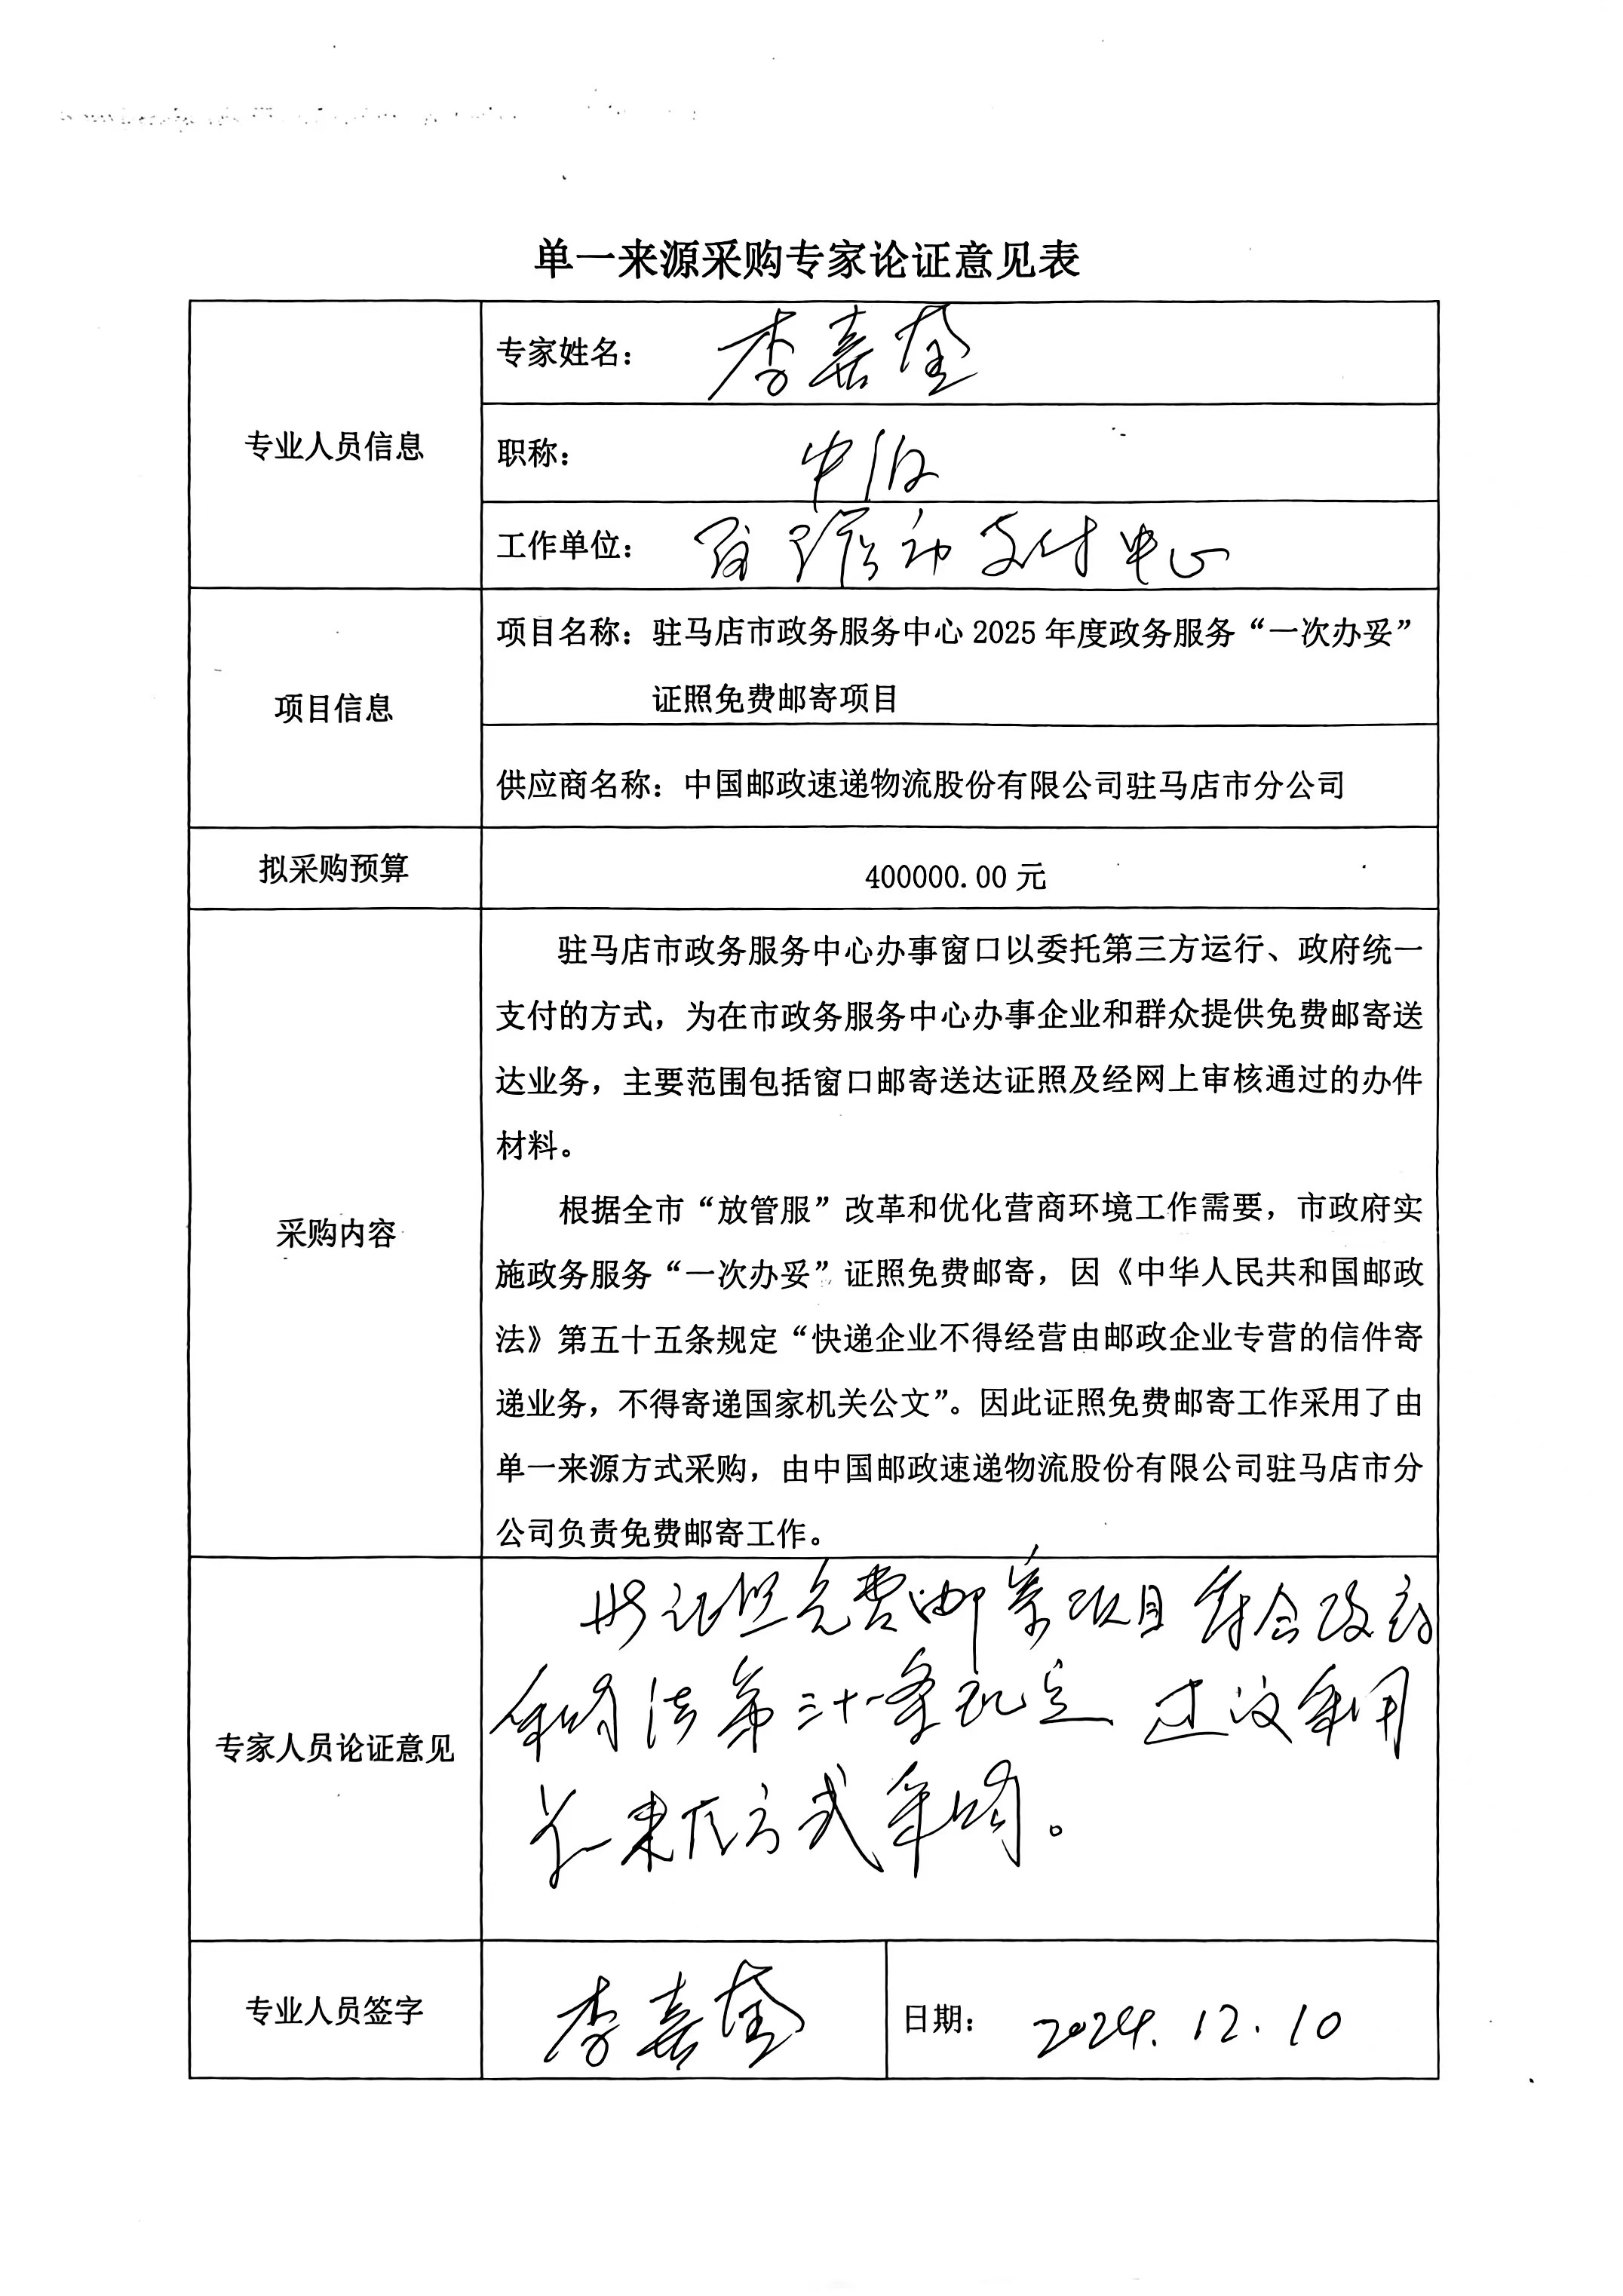 单一来源采购专家论证意见表
专业人员信息
专家姓名：李嘉奎
职称：中级
工作单位：支付中心
项目信息
项目名称：驻马店市政务服务中心 2025 年度政务服务“一次办妥”
证照免费邮寄项目
供应商名称：中国邮政速递物流股份有限公司驻马店市分公司
拟采购预算
400000.00 元
采购内容
驻马店市政务服务中心办事窗口以委托第三方运行、政府统一
支付的方式，为在市政务服务中心办事企业和群众提供免费邮寄送
达业务，主要范围包括窗口邮寄送达证照及经网上审核通过的办件
材料。
根据全市“放管服”改革和优化营商环境工作需要，市政府实
施政务服务“一次办妥”证照免费邮寄，因《中华人民共和国邮政
法》第五十五条规定“快递企业不得经营由邮政企业专营的信件寄
递业务，不得寄递国家机关公文”。因此证照免费邮寄工作采用了由
单一来源方式采购，由中国邮政速递物流股份有限公司驻马店市分
公司负责免费邮寄工作。
专家人员论证意见
证照免费邮寄项目符合政府
采购法第三十一条规定 建议采用
单一来源方式采购。
专业人员签字
李嘉奎
日期：2024.12.10